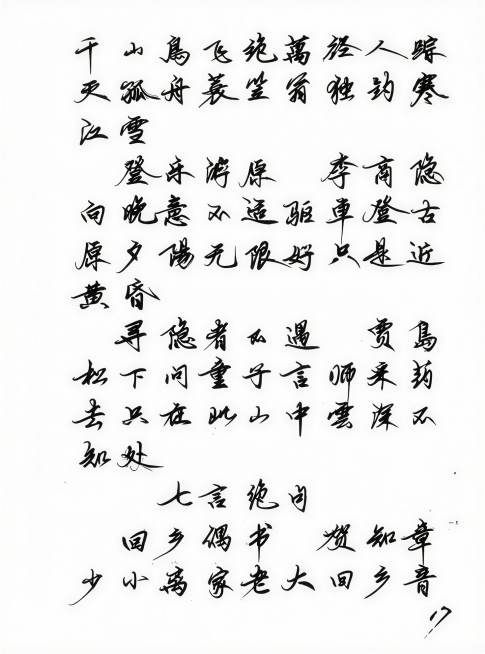 千山鳥飞绝萬径人踪
灭孤舟蓑笠翁独钓寒
江雪
登乐游原 李商隐
向晚意不适驱車登古
原夕陽无限好只是近
黄昏
寻隐者不遇 贾島
松下问童子言师采药
去只在此山中雲深不
知处
七言绝句
回乡偶书 贺知章
少小离家老大回乡音
17